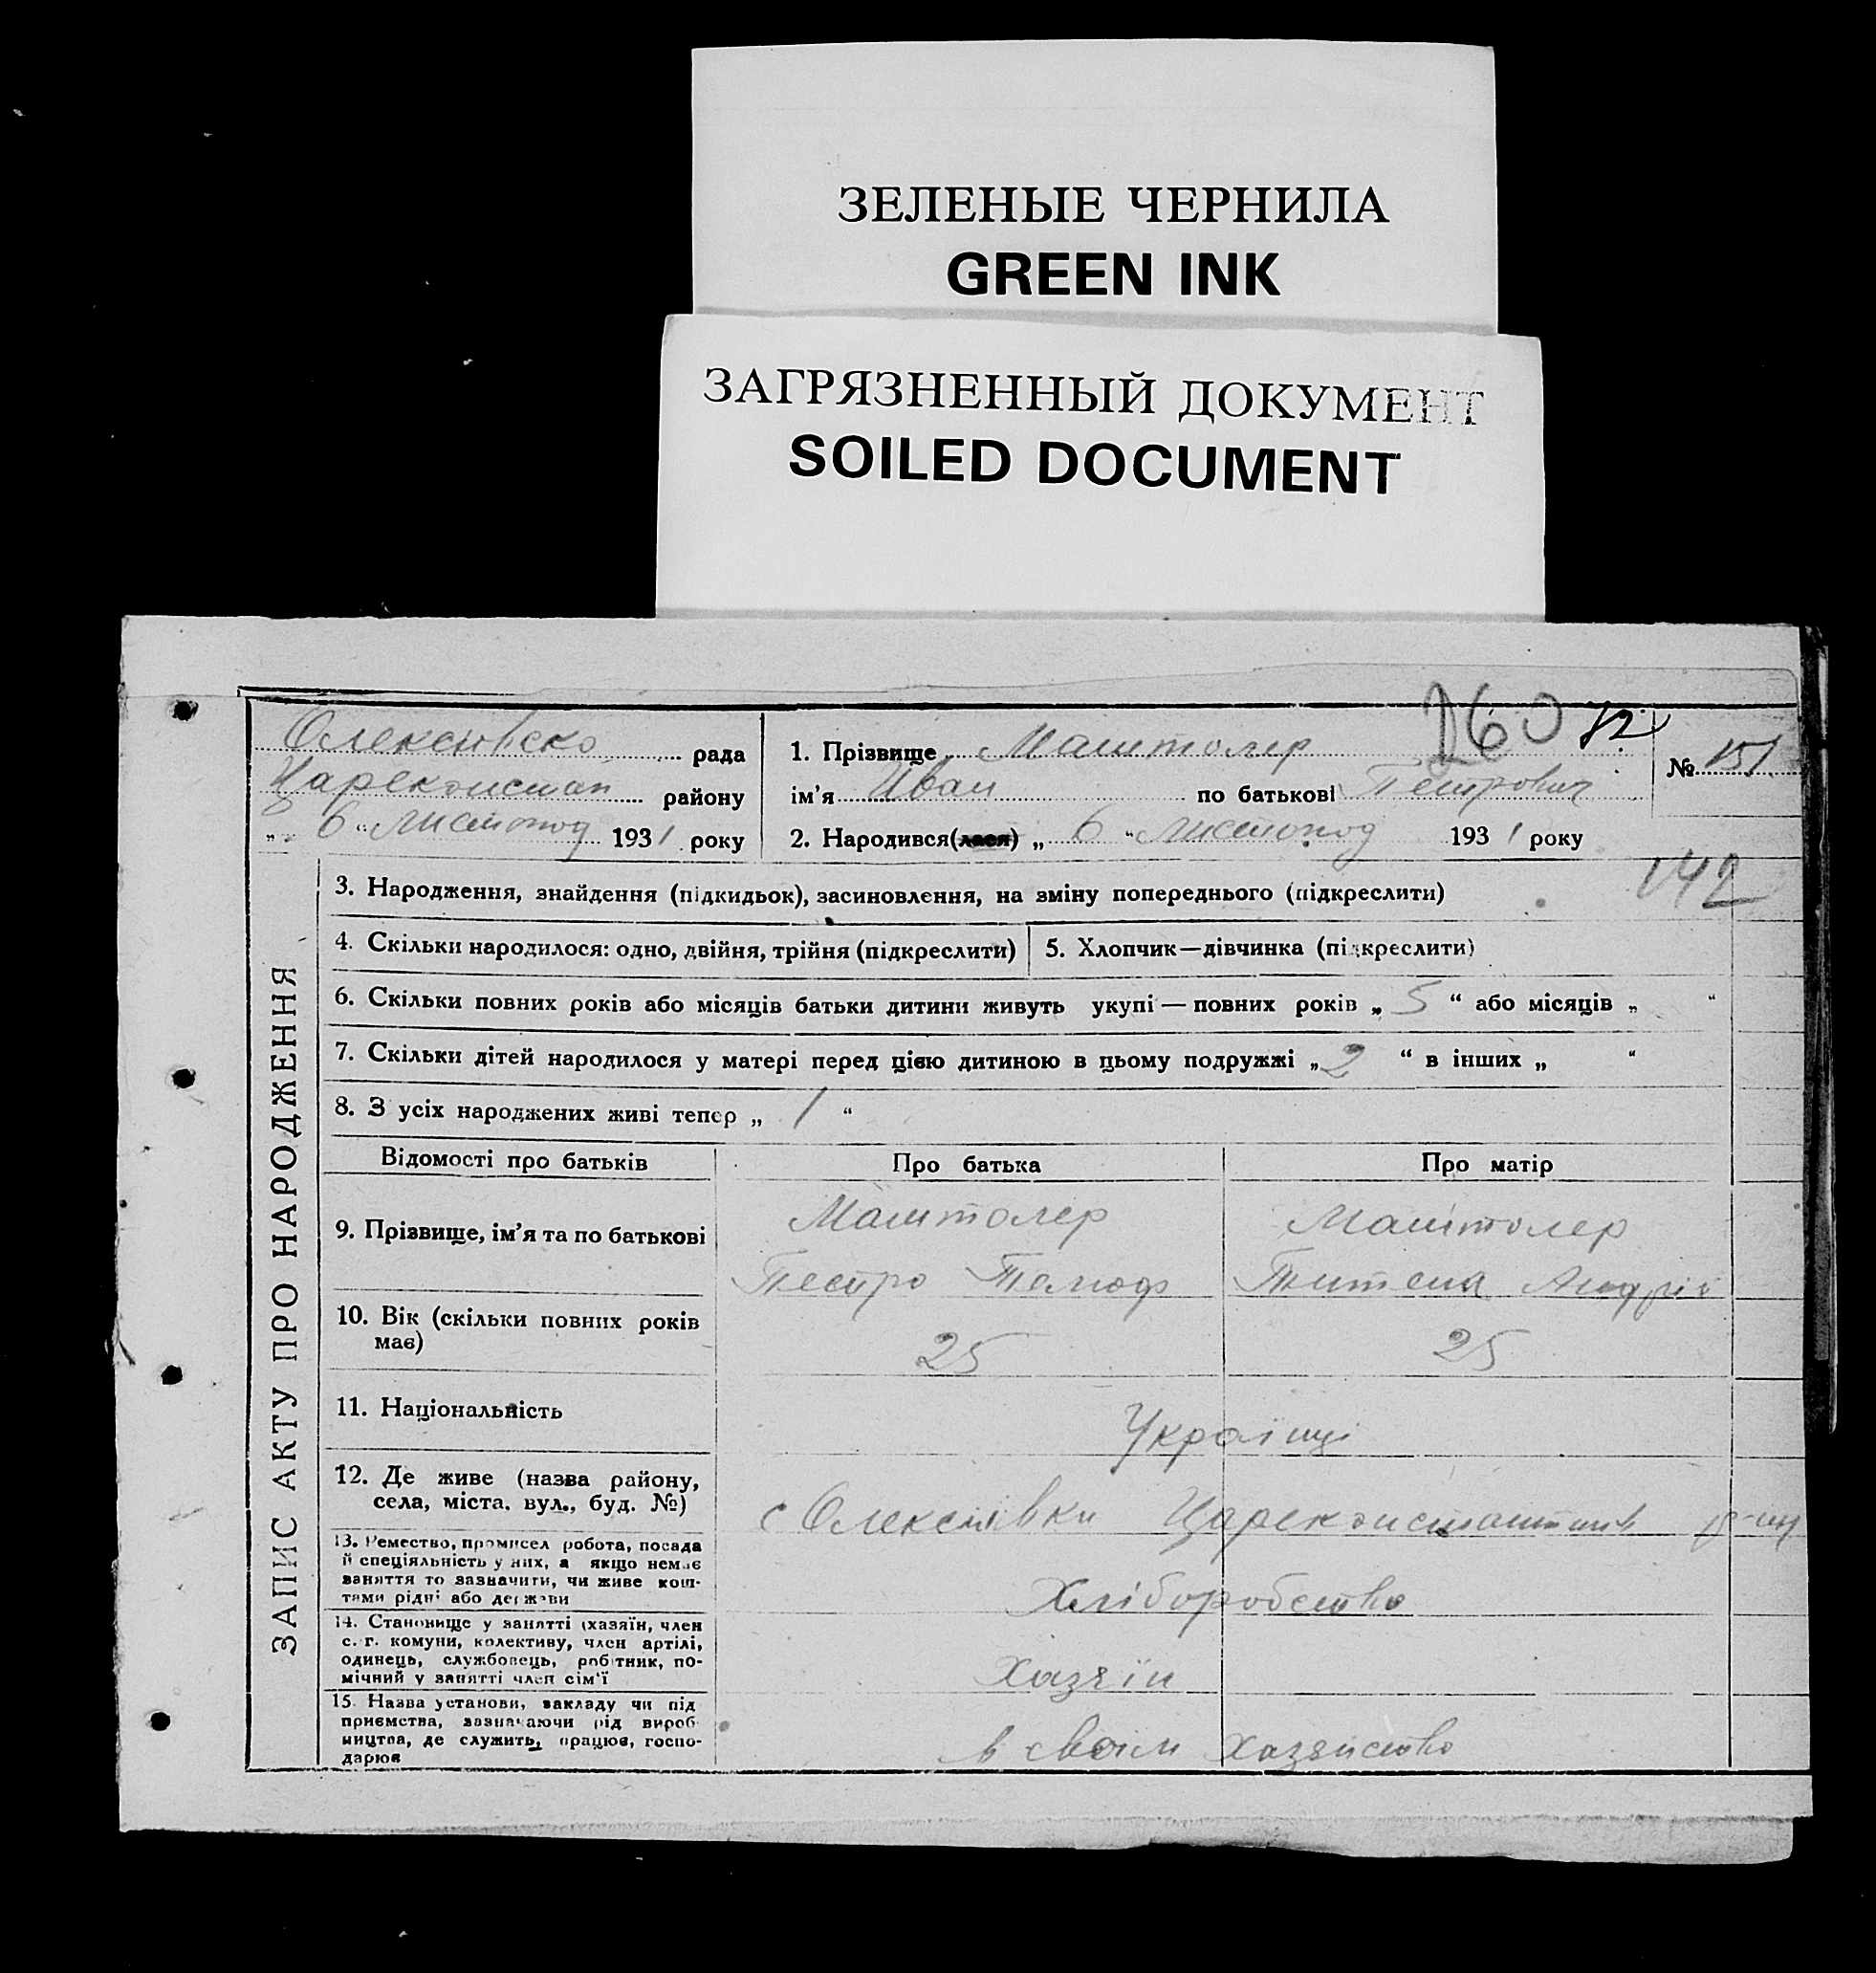 ЗЕЛЕНЫЕ ЧЕРНИЛА
GREEN INK
ЗАГРЯЗНЕННЫЙ ДОКУМЕНТ
SOILED DOCUMENT
160 72
ЗАПИС АКТУ ПРО НАРОДЖЕННЯ
рада
району
„ 6 “ листопод 1931 року
1. Прізвище Маштолер
ім’я Иван по батькові Петрович
2. Народився(лася) „ 6 “ листопод 1931 року
№ 151
142
3. Народження, знайдення (підкидьок), засиновлення, на зміну попереднього (підкреслити)
4. Скільки народилося: одно, двійня, трійня (підкреслити)
5. Хлопчик—дівчинка (підкреслити)
6. Скільки повних років або місяців батьки дитини живуть укупі — повних років „ 5 “ або місяців „ “
7. Скільки дітей народилося у матері перед цією дитиною в цьому подружжі „ 2 “ в інших „ “
8. З усіх народжених живі тепер „ 1 “
Відомості про батьків
Про батька
Про матір
9. Прізвище, ім’я та по батькові
Маштолер
Петро
Маштолер
Андрій
10. Вік (скільки повних років
має)
25
25
11. Національність
Українці
12. Де живе (назва району,
села, міста, вул., буд. №)
с Олексіівки
13. Ремество, промисел робота, посада
й спеціяльність у них, а якщо немає
заняття то зазначити, чи живе кош-
тами рідні або держави
Хліборобство
14. Становище у занятті (хазяїн, член
с.-г. комуни, колективу, член артілі,
одинець, службовець, робітник, по-
мічний у занятті член сім’ї
Хазяїн
15. Назва установи, закладу чи під
приємства, зазначаючи рід вироб-
ництва, де служить, працює, госпо-
дарює
в своїм хазяйство